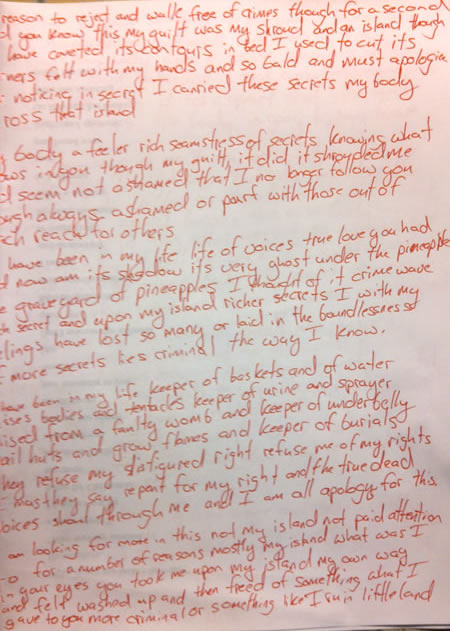 reason to reject and walk free of crimes though for a second
you know this my guilt was my shroud and an island though
have coveted its contours in feel I used to cut its
ners felt with my hands and so bald and must apologize
noticing in secret I carried these secrets my body
ross that island
body a feeler rich seamstress of secrets, knowing what
ows in you though my guilt, it did it shrouded me
d seem not ashamed that I no longer follow you
ough always ashamed or part with those out of
ch ready for others
have been in my life life of voices true love you had
d now am its shadow its very ghost under the pineapple
e graveyard of pineapples I thought of it crime wave
th secret and upon my island richer secrets I with my
elings have lost so many or laid in the boundlessness
f more secrets lies criminal the way I know.
have been in my life keeper of baskets and of water
ises bodies and tentacles keeper of urine and sprayer
ised from a faulty womb and keeper of underbelly
ail huts and grow flames and keeper of burials
hey refuse my disfigured right refuse me of my rights
I must they say repent for my right and the true dead
oices shout through me and I am all apology for this.
am looking for more in this not my island not paid attention
o for a number of reasons mostly my island what was I
in your eyes you took me upon my island my own way
and felt washed up and then freed of something what I
gave to you more criminal or something like I ruin little land